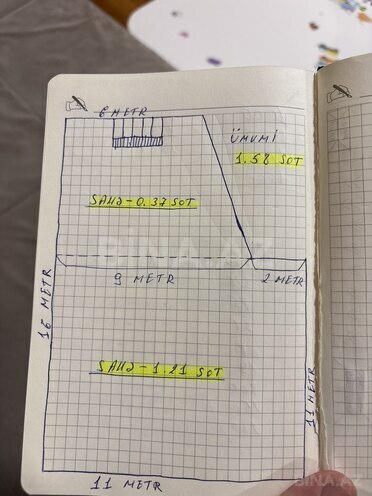 6 METR
ÜMUMİ
1.58 SOT
SAHə-0.37 SOT
BINA.AZ
9 METR
2 METR
16 METR
SAHə-1.21 SOT
11 METR
11 METR
BINA.AZ